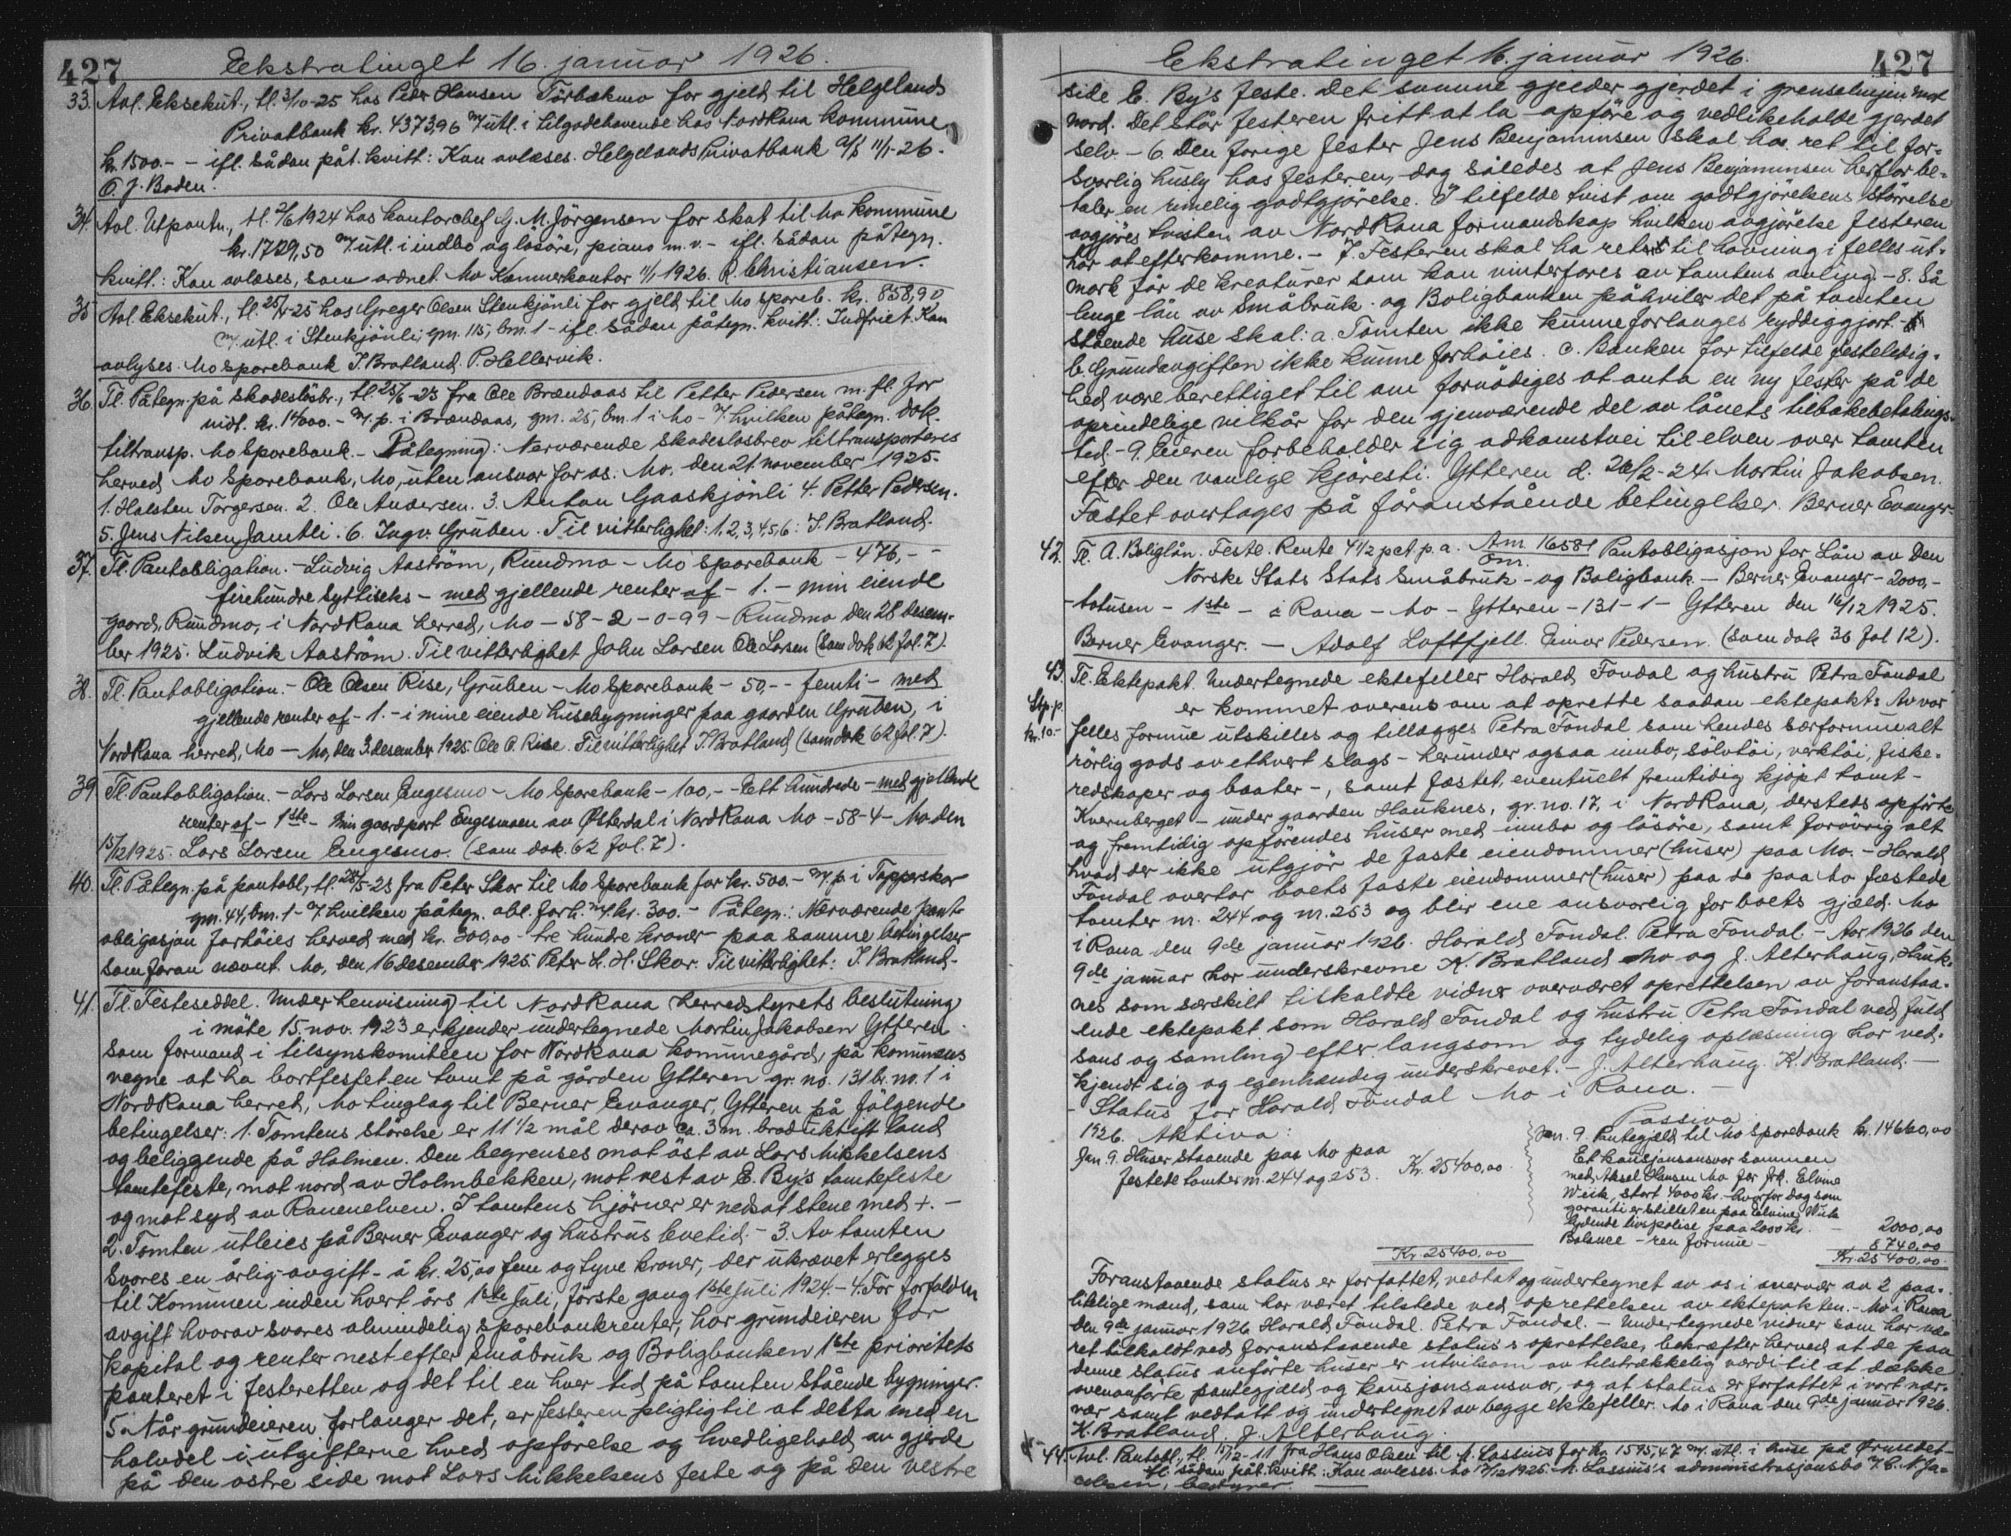 427
Ekstratinget 16. januar 1926.
33. Avl. Eksekut., tl. 3/10-25 hos Peder Hansen Törbækmo for gjeld til Helgelands
Privatbank kr. 4373,96 m/utl. i tilgodehavende hos Nordrana kommune
kr. 1500.- - ifl. sådan påt. kvitt: Kan avlæses. Helgelands Privatbank A/S 11/1-26.
O. J. Boden.
34. Avl. Utpantn., tl. 2/6 1924 hos kontorchef G. M. Jörgensen for skat til Mo kommune
kr. 1729,50 m/utl. i indbo og lösöre, piano m.v. - ifl. sådan påtegn.
kvitt.: Kan avlæses, som ordnet Mo Kæmnerkontor 11/1 1926. R. Christiansen.
35 Avl. Eksekut., tl. 25/4-25 hos Greger Olsen Stenkjönli for gjeld til Mo Spareb. kr. 858,90
m/utl. i Stenkjönli, gm. 115, bm. 1 - ifl. sådan påtegn. kvitt.: Indfriet. Kan
avlyses. Mo Sparebank J. Bratland. P. Hellervik.
36 Tl. Påtegn. på skadeslösbr., tl. 25/7-23 fra Ole Brændaas til Petter Pedersen m. fl. for
indt. kr. 14000.- m/p. i Brændaas, gm. 25, bm. 1 i Mo - v/ hvilken påtegn. dok.
tiltransp. Mo Sparebank. - Påtegning: Nærværende skadeslösbrev tiltransporteres
herved Mo Sparebank, Mo, uten ansvar for os. Mo, den 21. november 1925.
1. Halsten Torgersen. 2. Ole Andersen. 3. Anton Gaaskjönli 4. Petter Pedersen.
5. Jens Nilsen Jamtli. 6. Ingv. Gruben. Til vitterlighet: 1, 2, 3, 4, 5, 6: J. Bratland.
37. Tl. Pantobligation. - Ludvig Aaström, Ruudmo - Mo Sparebank - 476,- -
firehundre syttiseks - med gjellende renter af - 1. - min eiende
gaard, Ruudmo, i Nordrana herred, Mo - 58 - 2 - 0-99 - Ruudmo den 28 desem-
ber 1925. Ludvik Aaström. Til vitterlighet John Larsen Ole Larsen (sam dok 62 fol. 7).
38. Tl. Pantobligation. - Ole Olsen Rise, Gruben - Mo Sparebank - 50,- - femti - med
gjellende renter af - 1. - i mine eiende husebygninger paa gaarden Gruben, i
Nordrana herred, Mo - Mo, den 3. desember 1925. Ole O. Rise. Til vitterlighet J. Bratland (sam dok 62 fol. 7).
39 Tl. Pantobligation. - Lars Larsen Engesmo - Mo Sparebank - 100,- - Ett hundrede - med gjellende
renter af - 1ste - Min gaardpart Engesmoen av Østerdal i Nordrana Mo - 58-4 - Mo den
15/12 1925. Lars Larsen Engesmo. (sam dok. 62 fol. 7).
40. Tl. Påtegn. på pantobl., tl. 28/5-23 fra Peter Skar til Mo Sparebank for kr. 500.- m/p. i Tapperskar
gm. 44, bm. 1 - v/ hvilken påtegn. obl. forh. m/ kr. 300.- Påtegn.: Nærværende pant-
obligasjon forhöies herved med kr. 300,00 - tre hundre kroner - paa samme betingelser
som foran nævnt. Mo, den 16 desember 1925. Peter L. H. Skar. Til vitterlighet: J. Bratland.
41. Tl. Festeseddel. Under henvisning til Nordrana herredstyrets beslutning
i möte 15. nov. 1923 erkjender undertegnede Martin Jakobsen Ytteren
som formand i tilsynskomiteen for Nordrana kommunegård, på kommunens
vegne at ha bortfestet en tomt på gården Ytteren gr. no. 131 br. no. 1 i
Nordrana herret, Mo tinglag til Berner Evanger, Ytteren på følgende
betingelser: 1. Tomtens störelse er 11 1/2 mål derav ca. 3 m. braduktift land
og beliggende på Holmen. Den begrenses mot öst av Lars Mikkelsens
tomtefeste, mot nord av Holmbekken, mot vest av E. By's tomtefeste
og mot syd av Ranenelven. I tomtens hjörner er nedsat stene med +. -
2. Tomten utleies på Berner Evanger og hustrus levetid. - 3. Av tomten
svares en årlig avgift - à kr. 25,00 fem og tyve kroner, der ukrævet erlegges
til Kommunen inden hvert års 1ste Juli, förste gang 1ste juli 1924. - 4. For forfalden
avgift hvorav svares almindelig sparebankrenter, har grundeieren for
kapital og renter nest efter Småbruk og Boligbanken 1ste prioritets
panteret i festeretten og det til en hver tid på tomten stående bygninger.
5. Når grundeieren forlanger det, er festeren pligtig til at delta med en
halvdel i utgifterne hved opförelse og hvedligehold av gjerde
på den östre side mot Lars Mikkelsens feste og på den vestre
427
Ekstratinget 16. januar 1926.
side E. By's feste. Det samme gjelder gjerdet i grenselinjen mot
nord. Det står festeren fritt at la opföre og vedlikeholde gjerdet
selv - 6. Den forige fester Jens Benjaminsen skal ha ret til for-
svarlig husly hos festeren, dog således at Jens Benjaminsen herfor be-
taler en rimelig godtgjörelse. I tilfelde tvist om godtgjörelsens störrelse
avgjöres tvisten av Nordrana formandskap hvilken avgjörelse festeren
har at efterkomme. - 7. Festeren skal ha ret til havning i felles ut-
mark for de kreaturer som kan vinterfores av tomtens avling. - 8. Så
lenge lån av Småbruk- og Boligbanken påhviler det på tomten
stående huse skal: a. Tomten ikke kunne forlanges ryddiggjort.
b. Grundavgiften ikke kunne forhöies. c. Banken for tilfelde festeledig-
hed være berettiget til om fornödiges at anta en ny fester på de
oprindelige vilkår for den gjenværende del av lånets tilbakebetalings-
tid. - 9. Eieren forbeholder sig adkomstvei til elven over tomten
efter den vanlige kjöresti. Ytteren d. 26/2-24 Martin Jakobsen.
Festet overtages på foranstående betingelser. Berner Evanger.
42. Tl. A. Boliglån. Festl. Rente 4 1/2 pct p. a. Am 16581 Pantobligasjon for Lån av Den
Norske Stats Stats Småbruk - og Boligbank - Berner Evanger - 2000,-
-totusen - 1ste - i Rana - Mo - Ytteren - 131 - 1 - Ytteren den 16/12 1925.
Berner Evanger. - Adolf Loftfjell. Einar Pedersen. (sam dok 36 fol 12).
43. Tl. Ektepakt. Undertegnede ektefeller Harald Fondal og hustru Petra Fondal
Stp. p. kr. 10.-
er kommet overens om at oprette saadan ektepakt: Av vor
felles formue utskilles og tillægges Petra Fondal som hendes særformue alt
rörlig gods av ethvert slags - herunder ogsaa innbo, sölvtöi, verktöi, fiske-
redskaper og baater -, samt fæstet, eventuelt fremtidig kjöpt tomt -
Kvernberget - under gaarden Hauknes, gr. no. 17, i Nordrana, dersteds opförte
og fremtidig opförendes huser med innbo og lösöre, samt forövrig alt
hvad der ikke utgjör de faste eiendommer (huser) paa Mo. - Harald
Fondal overtar boets faste eiendommer (huser) paa de paa Mo fæstede
tomter nr. 244 og nr. 253 og blir ene ansvarlig for boets gjæld. Mo
i Rana den 9de januar 1926. Harald Fondal. Petra Fondal - Aar 1926 den
9de januar har underskrevne K. Bratland Mo og J. Alterhaug, Hauk-
nes som særskilt tilkaldte vidner overværet oprettelsen av foranstaa-
ende ektepakt som Harald Fondal og hustru Petra Fondal ved fuld
sans og samling efter langsom og tydelig oplæsning har ved-
kjendt sig og egenhændig underskrevet. - J. Alterhaug. K. Bratland. -
- Status for Harald Fondal Mo i Rana. -
1926. Aktiva:
Jan. 9. Huser staaende paa Mo paa
festede tomter nr. 244 og 253. Kr. 25400,00
Kr. 25400,00
Passiva
Jan. 9. Pantegjæld til Mo Sparebank kr. 14660,00
Et kausjonsansvar sammen
med Aksel Hansen Mo for frk. Elvine
Wiik, stort 4000 kr. - hvorfor dog som
garanti er stillet en paa Elvine Wiik
lydende livspolise paa 2000 kr. - 2000,00
Balance - ren formue - 8740,00
Kr. 25400,00
Foranstaaende status er forfattet, vedtat og undertegnet av os i nærvær av 2 paa-
litelige mænd, som har været tilstede ved oprettelsen av ektepakten. - Mo i Rana
den 9de januar 1926 Harald Fondal. Petra Fondal. - Undertegnede vidner som har væ-
ret tilkaldt ved foranstaaende status's oprettelse, bekræfter herved at de paa
denne status anförte huser er utvilsom av tilstrækkelig værdi til at dække
ovenanförte pantegjæld og kausjonsansvar, og at status er forfattet i vort nær-
vær samt vedtatt og undertegnet av begge ektefeller. Mo i Rana den 9de januar 1926.
K. Bratland. J. Alterhaug.
44. Avl. Pantobl., tl. 15/12-11 fra Hans Olsen til M. Lassius for kr 1595,47 m/utl. i huse på Ørnsedet-
ifl. sådan påt. kvitt: Kan avlæses. Mo 17/12 1925. M. Lassius's administrasjonsbo v/ C. N. Ja-
cobsen, bestyrer.